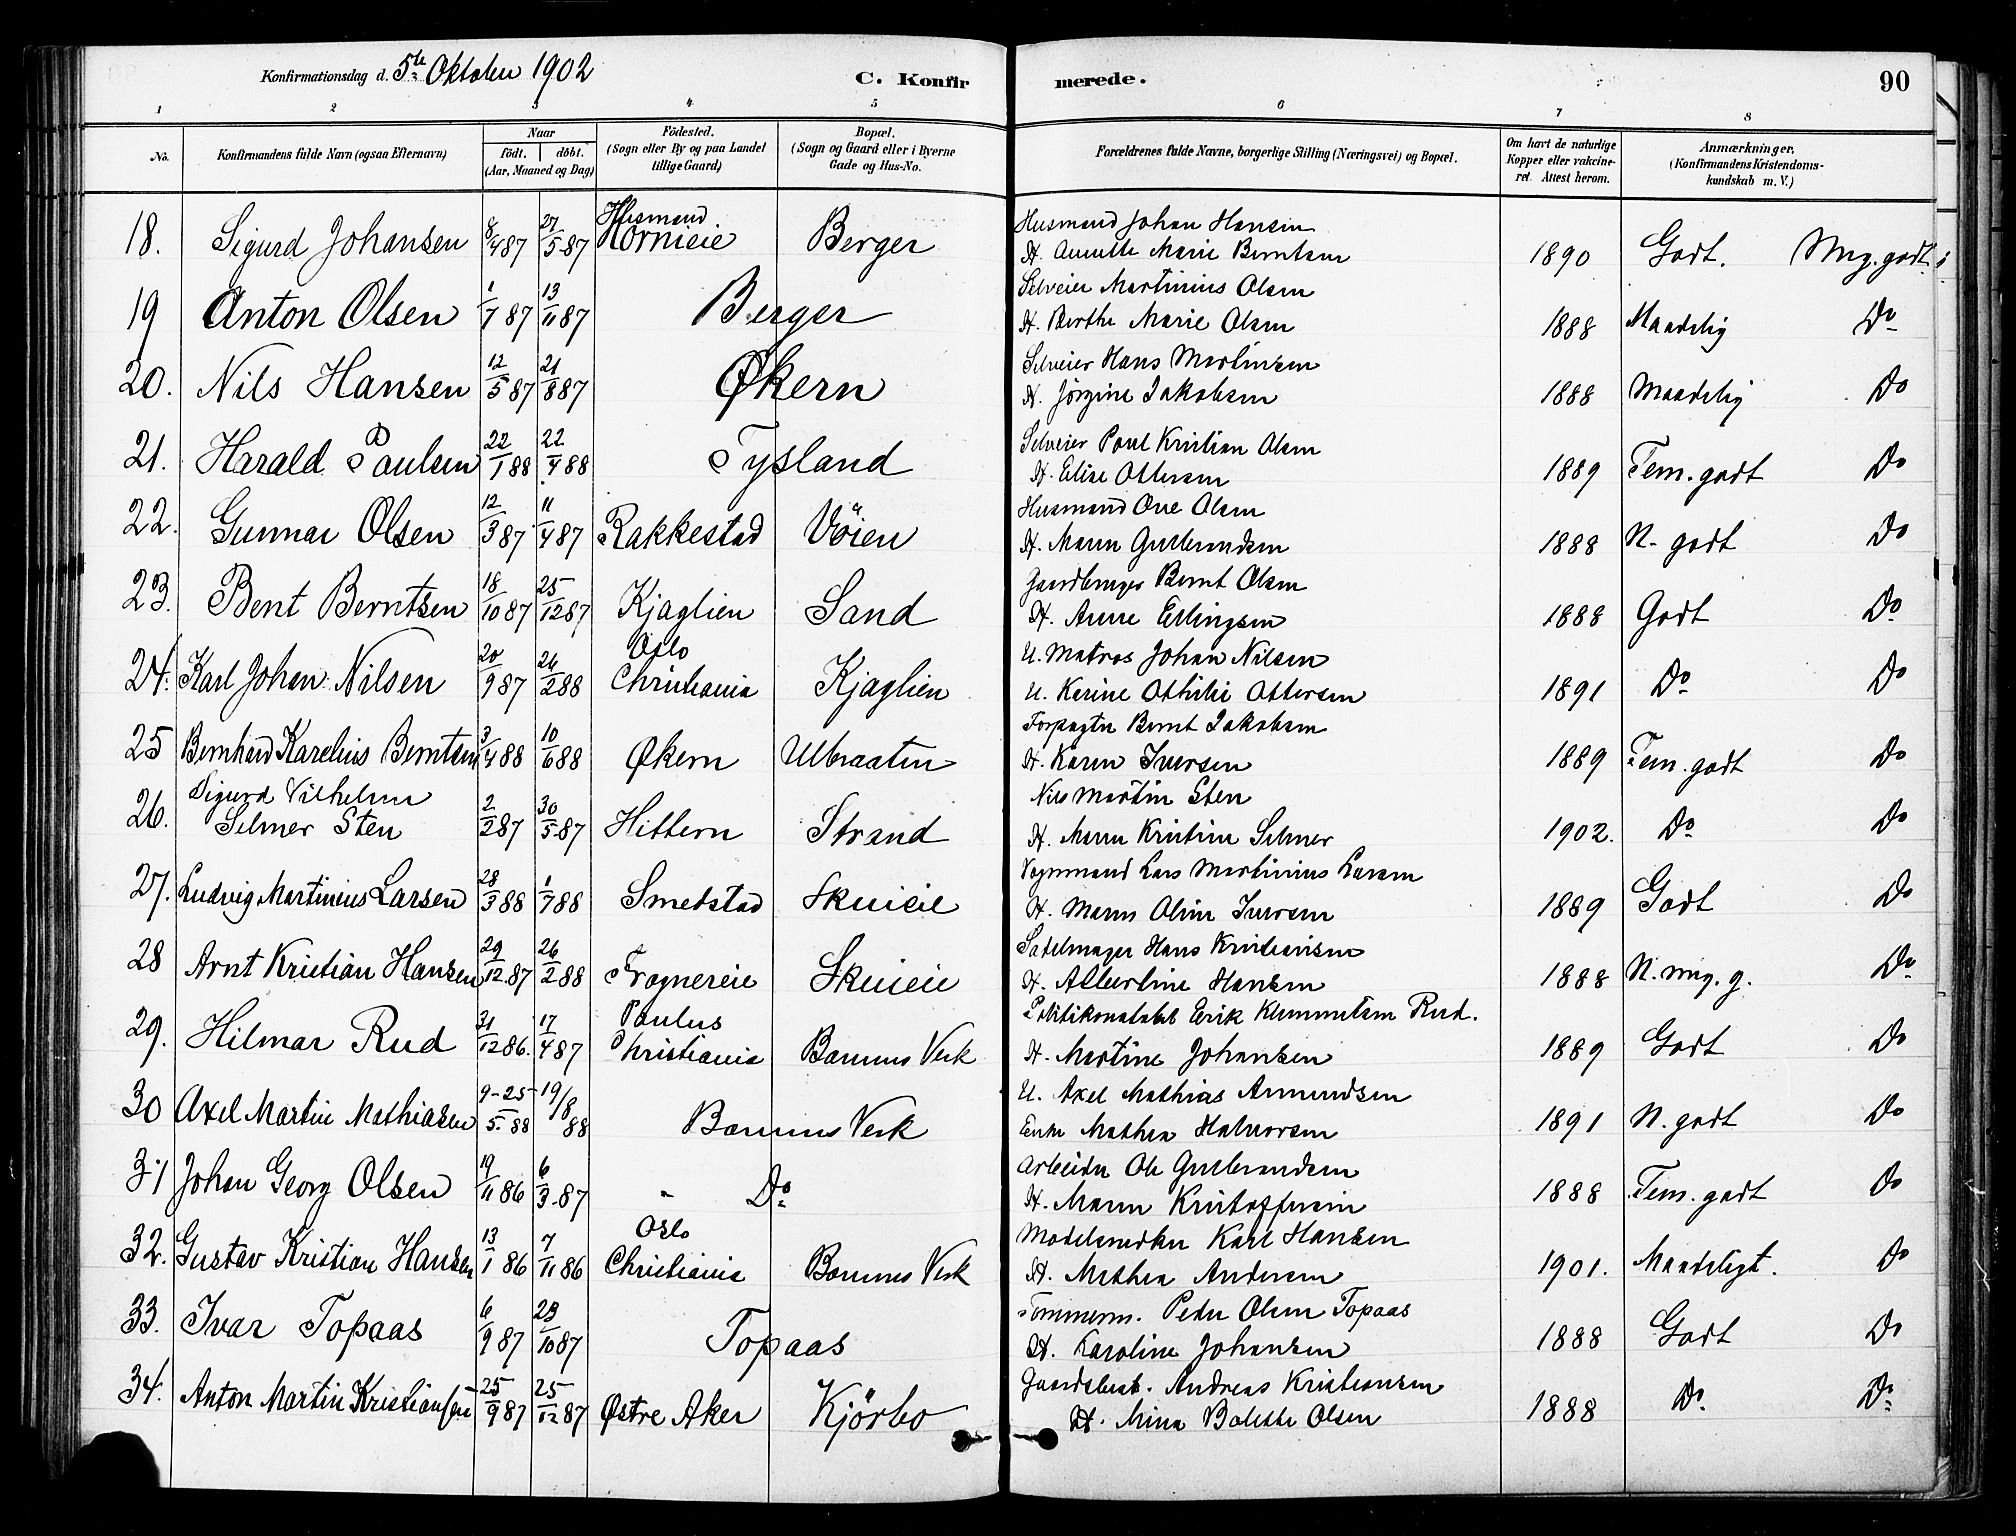 Konfirmationsdag d. 5te Oktober 1902 C. Konfirmerede. 90
1 2 3 4 5 6 7 8
No. Konfirmandens fulde Navn (ogsaa Efternavn) Naar født. døbt. (Aar, Maaned og Dag) Födested. (Sogn eller By og paa Landet tillige Gaard) Bopæl. (Sogn og Gaard eller i Byerne Gade og Hus-No. Forældrenes fulde Navne, borgerlige Stilling (Næringsvei) og Bopæl. Om havt de naturlige Kopper eller vakcineret. Attest herom. Anmærkninger. (Konfirmandens Kristendomskundskab m. V.)
Husmand Husmand Johan Hansen
18. Sigurd Johansen 8/4 87 27/5 87 Hornieie Berger H. Annette Marie Berntsen 1890 Godt. Mg. godt.
Selveier Martinius Olsen
19 Anton Olsen 1/7 87 13/11 87 Berger H. Berthe Marie Olsen 1888 Maadelig Do
Selveier Hans Martinsen
20. Nils Hansen 12/5 87 21/8 87 Økern H. Jörgine Jakobsen 1888 Maadelig Do
Selveier Paul Kristian Olsen
21. Harald Paulsen 22/1 88 22/4 88 Tysland H. Elise Ottersen 1889 Tem. godt Do
Husmand Ole Olsen
22. Gunnar Olsen 12/3 87 11/4 87 Rakkestad Vöien H. Maren Gulbrandsen 1888 N. godt Do
Gaardbruger Bernt Olsen
23. Bent Berntsen 18/10 87 25/12 87 Kjaglien Sand H. Anne Ellingsen 1888 Godt Do
Oslo U. Matros Johan Nilsen
24. Karl Johan Nilsen 20/9 87 26/2 88 Christiania Kjaglien U. Karine Othilie Ottersen 1891 Do Do
Forpagter Bernt Jakobsen
25 Bernhard Karelius Berntsen 3/4 88 10/6 88 Økern Ulbraaten H. Karen Iversen 1889 Tem. godt Do
Sigurd Vilhelm Nils Martin Sten
26. Selmer Sten 2/2 87 30/5 87 Hittern Strand H. Maren Kristine Selmer 1902. Do Do
Vognmand Lars Martinius Larsen
27. Ludvig Martinius Larsen 28/3 88 1/7 88 Smedstad Skuieie H. Maren Oline Iversen 1889 Godt Do
Sadelmager Hans Kristiansen
28 Arnt Kristian Hansen 29/12 87 26/2 88 Frognereie Skuieie H. Albertine Hansen 1888 N. mg. g. Do
Paulus Politikonstabel Erik Klemmetsen Rud.
29. Hilmar Rud 31/12 86. 17/4 87 Christiania Bærums Verk H. Martine Johansen 1889 Godt Do
U. Axel Mathias Amundsen
30 Axel Martin Mathiasen 9-25/5. 88 19/8 88 Bærums Verk Enke Mathea Halvorsen 1891 N. godt Do
Arbeider Ole Gulbrandsen
31 Johan Georg Olsen 19/11 86 6/3. 87 " Do H. Maren Kristoffersen 1888 Tem. godt Do
Oslo Modelsnedker Karl Hansen
32. Gustav Kristian Hansen 13/1 86 7/11 86 Christiania Bærums Verk H. Mathea Andersen 1901. Maadeligt. Do
Tömmerm. Peder Olsen Topaas
33. Ivar Topaas 6/9 87 23/10 87 Topaas H. Karoline Johansen 1888 Godt Do
Gaardsbest. Andreas Kristiansen
34. Anton Martin Kristiansen 25/9 87 25/12 87 Østre Aker Kjörbo H. Mina Bolette Olsen 1888 Do. Do